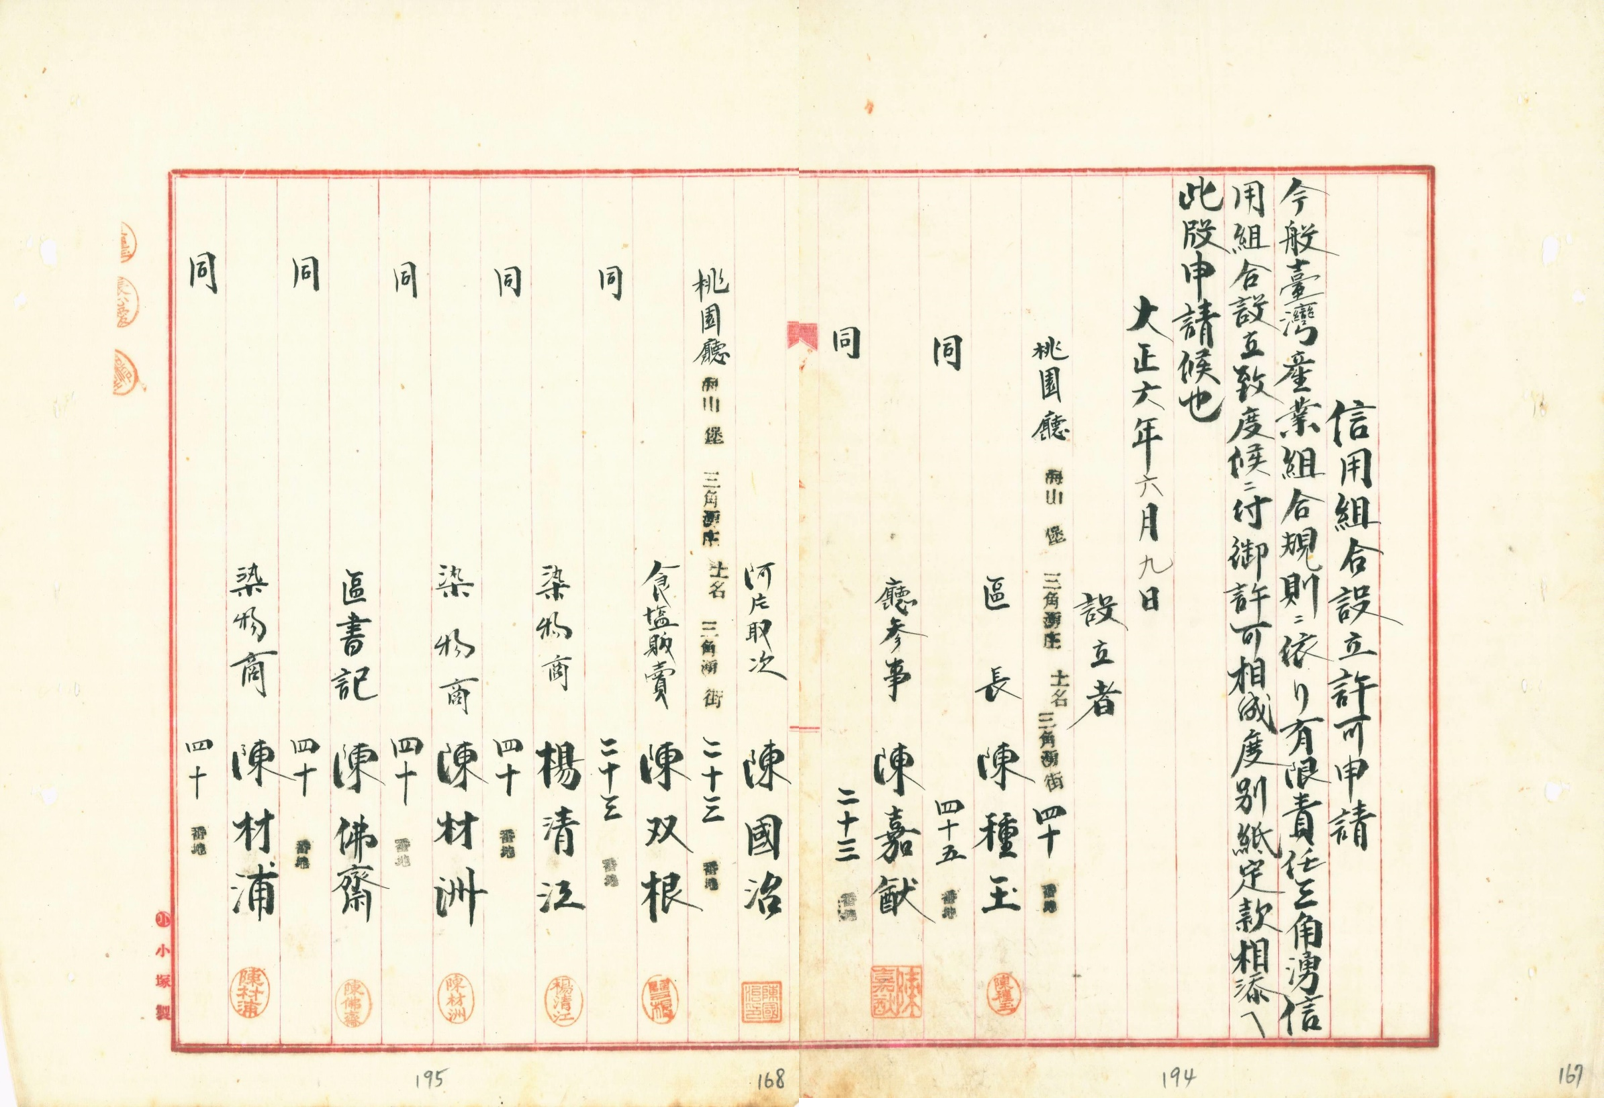 信用組合設立許可申請
今般臺灣産業組合規則ニ依リ有限責任三角湧信
用組合設立致度候ニ付御許可相成度別紙定款相添ヘ
此段申請候也
大正六年六月九日
設立者
桃園廳海山堡三角湧庄土名三角湧街四十番地
區長 陳種玉
同 四十五番地
廳參事 陳嘉猷
同 二十三番地
阿片取次 陳國治
桃園廳海山堡三角湧庄土名三角湧街二十三番地
食塩販賣 陳双根
同 二十三番地
染物商 楊清江
同 四十番地
染物商 陳材洲
同 四十番地
區書記 陳佛齋
同 四十番地
染物商 陳材浦
同 四十番地
陳種玉
陳嘉猷
楊清江
陳材洲
陳佛齋
陳材浦
小塚製
194
167
195
168